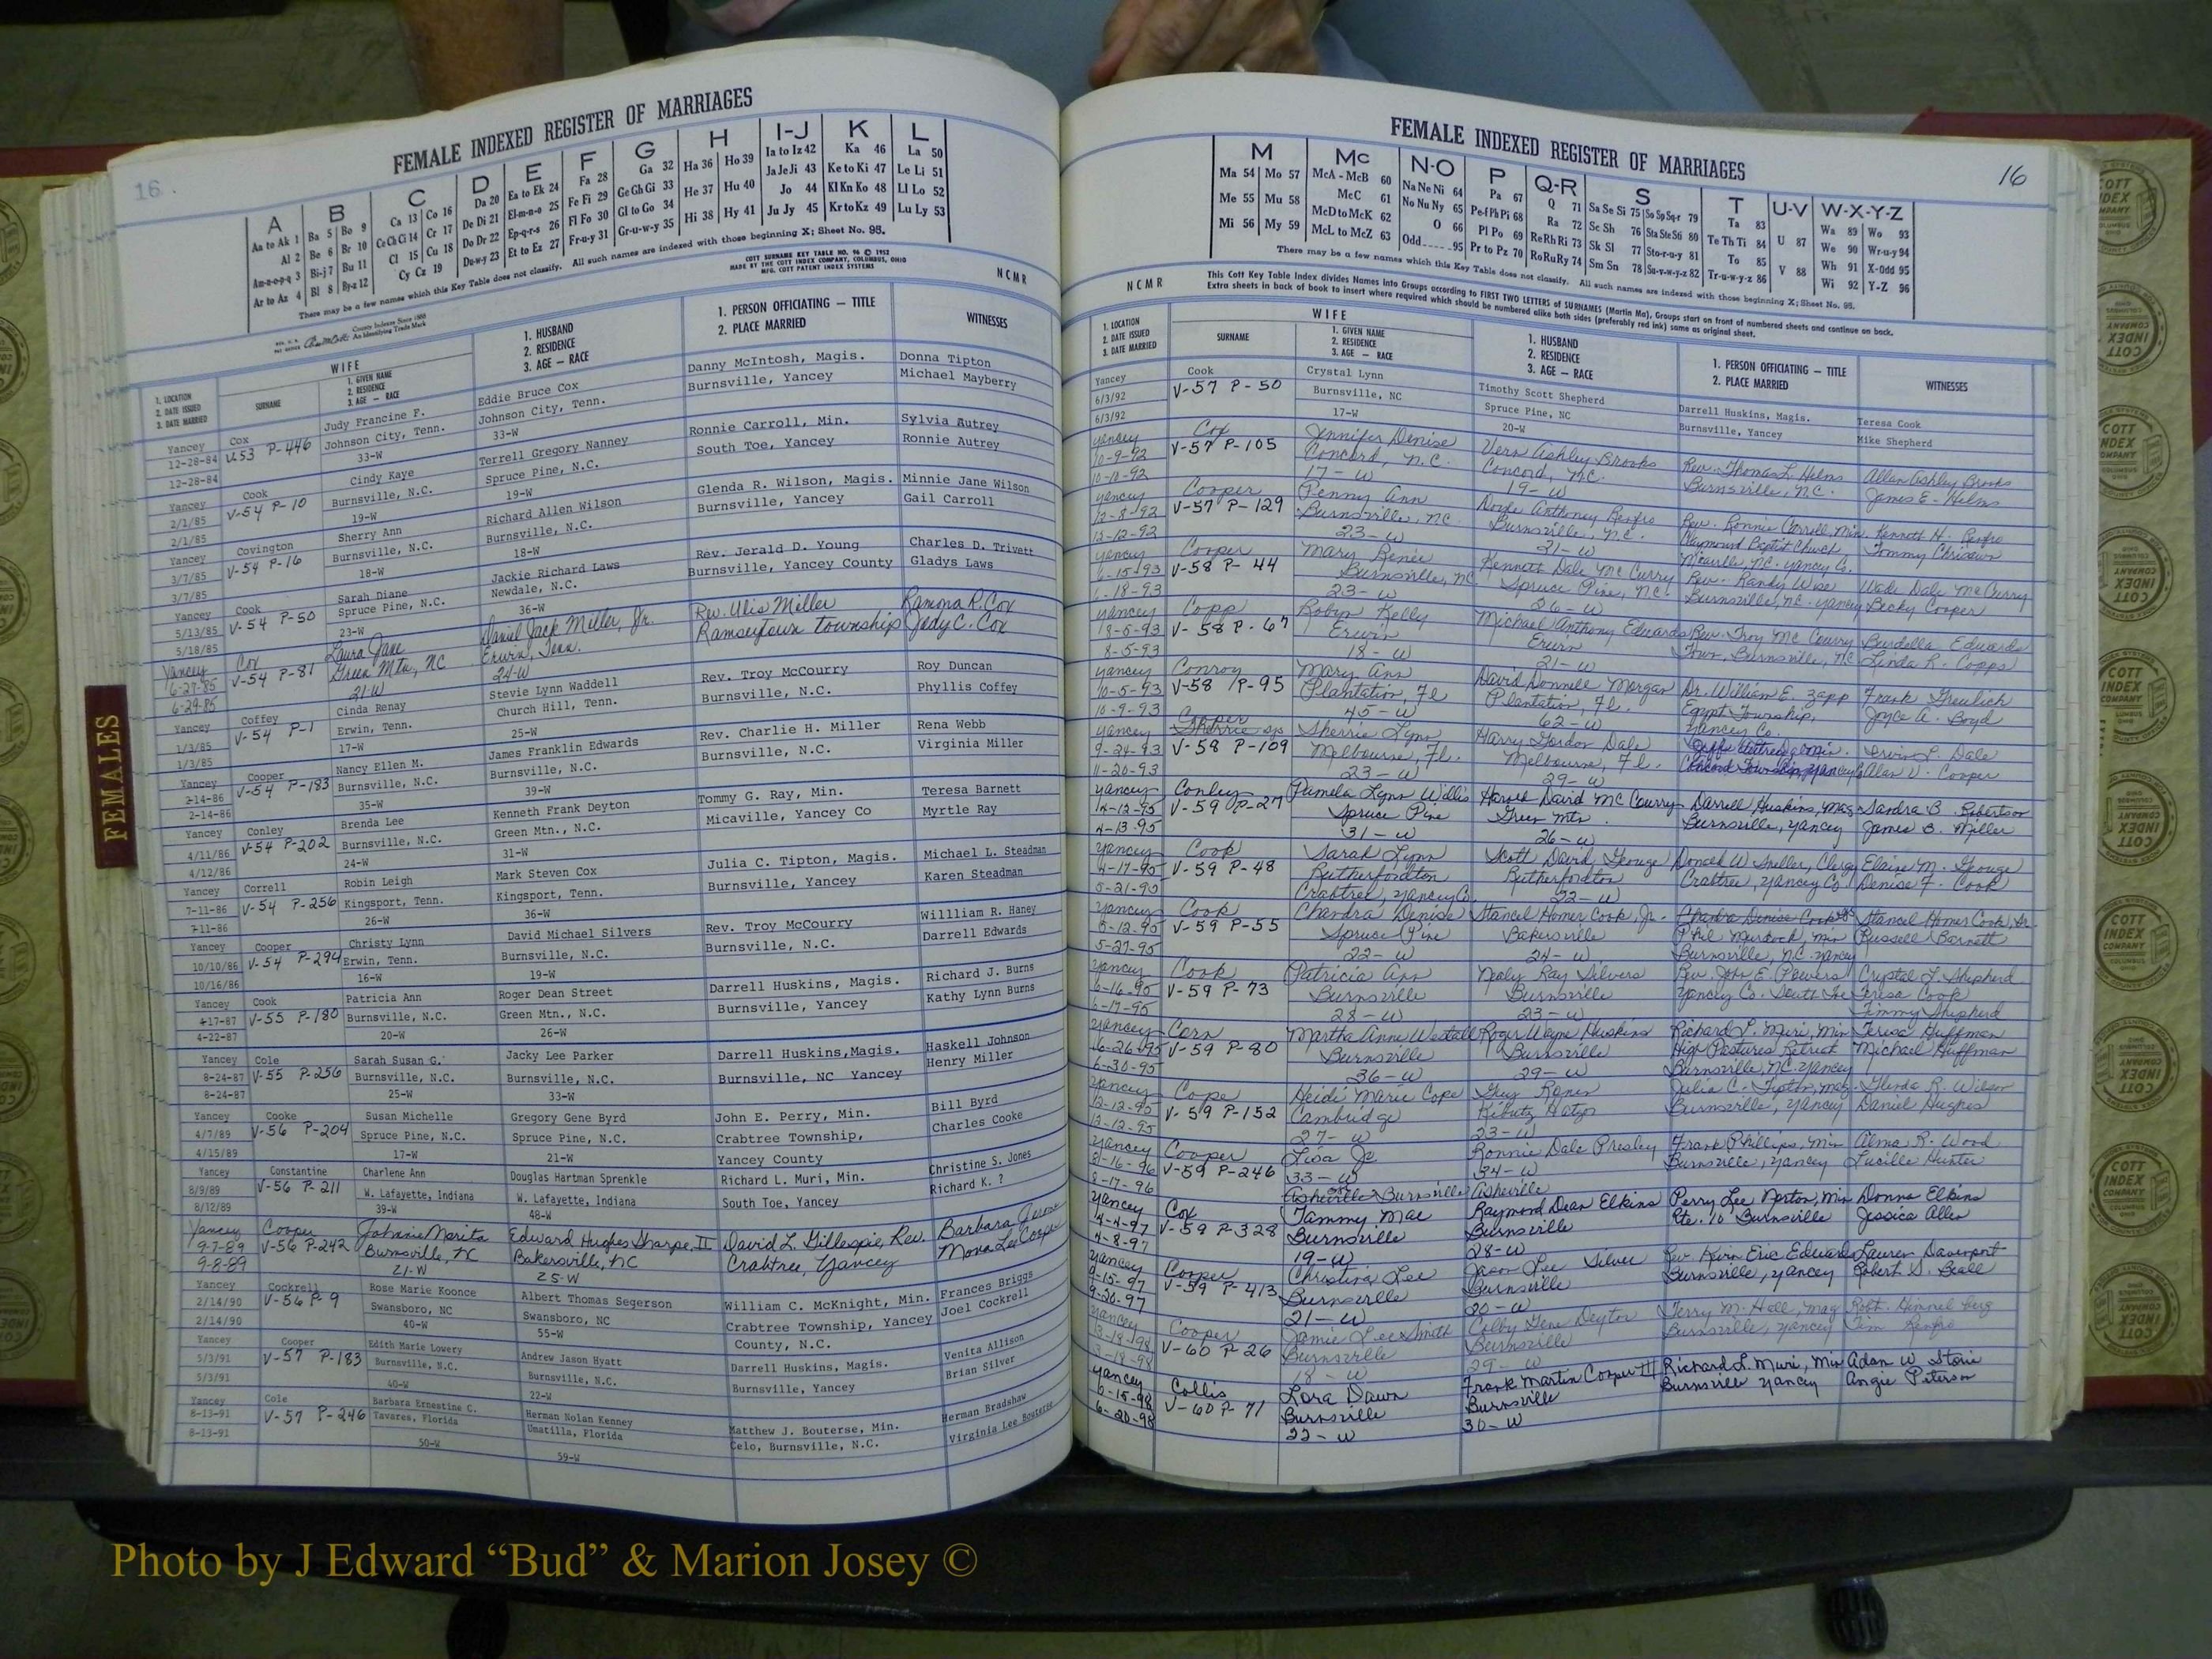 FEMALE INDEXED REGISTER OF MARRIAGES
16.
A
Aa to Ak 1
Al 2
Am-n-o-p-q 3
Ar to Az 4
B
Ba 5 Bo 9
Be 6 Br 10
Bi-j 7 Bu 11
Bl 8 By-z 12
C
Ca 13 Co 16
Ce Ch Ci 14 Cr 17
Cl 15 Cu 18
Cy Cz 19
D
Da 20
De Di 21
Do Dr 22
Du-w-y 23
E
Ea to Ek 24
El-m-n-o 25
Ep-q-r-s 26
Et to Ez 27
F
Fa 28
Fe Fi 29
Fl Fo 30
Fr-u-y 31
G
Ga 32
Ge Gh Gi 33
Gl to Go 34
Gr-u-w-y 35
H
Ha 36 Ho 39
He 37 Hu 40
Hi 38 Hy 41
I-J
Ia to Iz 42
Ja Je Ji 43
Jo 44
Ju Jy 45
K
Ka 46
Ke to Ki 47
Kl Kn Ko 48
Kr to Kz 49
L
La 50
Le Li 51
Ll Lo 52
Lu Ly 53
There may be a few names which this Key Table does not classify. All such names are indexed with those beginning X; Sheet No. 95.
COTT SURNAME KEY TABLE NO. 96 © 1952
MADE BY THE COTT INDEX COMPANY, COLUMBUS, OHIO
MFG. COTT PATENT INDEX SYSTEMS
NCMR
County Indexes Since 1888
An Identifying Trade Mark
1. LOCATION
2. DATE ISSUED
3. DATE MARRIED
WIFE
SURNAME
1. GIVEN NAME
2. RESIDENCE
3. AGE — RACE
1. HUSBAND
2. RESIDENCE
3. AGE — RACE
1. PERSON OFFICIATING — TITLE
2. PLACE MARRIED
WITNESSES
Yancey Cox Judy Francine F. Eddie Bruce Cox Danny McIntosh, Magis. Donna Tipton
12-28-84 V-53 P-446 Johnson City, Tenn. Johnson City, Tenn. Burnsville, Yancey Michael Mayberry
12-28-84 33-W 33-W
Yancey Cook Cindy Kaye Terrell Gregory Nanney Ronnie Carroll, Min. Sylvia Autrey
2/1/85 V-54 P-10 Burnsville, N.C. Spruce Pine, N.C. South Toe, Yancey Ronnie Autrey
2/1/85 19-W 19-W
Yancey Covington Sherry Ann Richard Allen Wilson Glenda R. Wilson, Magis. Minnie Jane Wilson
3/7/85 V-54 P-16 Burnsville, N.C. Burnsville, N.C. Burnsville, Yancey Gail Carroll
3/7/85 18-W 18-W
Yancey Cook Sarah Diane Jackie Richard Laws Rev. Jerald D. Young Charles D. Trivett
5/13/85 V-54 P-50 Spruce Pine, N.C. Newdale, N.C. Burnsville, Yancey County Gladys Laws
5/18/85 23-W 36-W
Yancey Cox Laura Jane Daniel Jack Miller, Jr. Rev. Ulis Miller Ramona R. Cox
6-27-85 V-54 P-81 Green Mtn, NC Erwin, Tenn. Ramseytown township Judy C. Cox
6-29-85 21-W 24-W
Yancey Coffey Cinda Renay Stevie Lynn Waddell Rev. Troy McCourry Roy Duncan
1/3/85 V-54 P-1 Erwin, Tenn. Church Hill, Tenn. Burnsville, N.C. Phyllis Coffey
1/3/85 17-W 25-W
Yancey Cooper Nancy Ellen M. James Franklin Edwards Rev. Charlie H. Miller Rena Webb
2-14-86 V-54 P-183 Burnsville, N.C. Burnsville, N.C. Burnsville, N.C. Virginia Miller
2-14-86 35-W 39-W
Yancey Conley Brenda Lee Kenneth Frank Deyton Tommy G. Ray, Min. Teresa Barnett
4/11/86 V-54 P-202 Burnsville, N.C. Green Mtn., N.C. Micaville, Yancey Co Myrtle Ray
4/12/86 24-W 31-W
Yancey Correll Robin Leigh Mark Steven Cox Julia C. Tipton, Magis. Michael L. Steadman
7-11-86 V-54 P-256 Kingsport, Tenn. Kingsport, Tenn. Burnsville, Yancey Karen Steadman
7-11-86 26-W 36-W
Yancey Cooper Christy Lynn David Michael Silvers Rev. Troy McCourry Willliam R. Haney
10/10/86 V-54 P-294 Erwin, Tenn. Burnsville, N.C. Burnsville, N.C. Darrell Edwards
10/16/86 16-W 19-W
Yancey Cook Patricia Ann Roger Dean Street Darrell Huskins, Magis. Richard J. Burns
4-17-87 V-55 P-180 Burnsville, N.C. Green Mtn., N.C. Burnsville, Yancey Kathy Lynn Burns
4-22-87 20-W 26-W
Yancey Cole Sarah Susan G. Jacky Lee Parker Darrell Huskins,Magis. Haskell Johnson
8-24-87 V-55 P-256 Burnsville, N.C. Burnsville, N.C. Burnsville, NC Yancey Henry Miller
8-24-87 25-W 33-W
Yancey Cooke Susan Michelle Gregory Gene Byrd John E. Perry, Min. Bill Byrd
4/7/89 V-56 P-204 Spruce Pine, N.C. Spruce Pine, N.C. Crabtree Township, Charles Cooke
4/15/89 17-W 21-W Yancey County
Yancey Constantine Charlene Ann Douglas Hartman Sprenkle Richard L. Muri, Min. Christine S. Jones
8/9/89 V-56 P-211 W. Lafayette, Indiana W. Lafayette, Indiana South Toe, Yancey Richard K. ?
8/12/89 39-W 48-W
Yancey Cooper Johnnie Marita Edward Hughes Sharpe, II David L. Gillespie, Rev. Barbara
9-7-89 V-56 P-242 Burnsville, NC Bakersville, NC Crabtree, Yancey Mona Lee Cooper
9-8-89 21-W 25-W
Yancey Cockrell Rose Marie Koonce Albert Thomas Segerson William C. McKnight, Min. Frances Briggs
2/14/90 V-56 P-9 Swansboro, NC Swansboro, NC Crabtree Township, Yancey Joel Cockrell
2/14/90 40-W 55-W County, N.C.
Yancey Cooper Edith Marie Lowery Andrew Jason Hyatt Darrell Huskins, Magis. Venita Allison
5/3/91 V-57 P-183 Burnsville, N.C. Burnsville, N.C. Burnsville, Yancey Brian Silver
5/3/91 40-W 22-W
Yancey Cole Barbara Ernestine C. Herman Nolan Kenney Matthew J. Bouterse, Min. Herman Bradshaw
8-13-91 V-57 P-246 Tavares, Florida Umatilla, Florida Celo, Burnsville, N.C. Virginia Lee Bouterse
8-13-91 50-W 59-W
FEMALES
FEMALE INDEXED REGISTER OF MARRIAGES
16
M
Ma 54 Mo 57
Me 55 Mu 58
Mi 56 My 59
Mc
McA - McB 60
McC 61
McD to McK 62
McL to McZ 63
N-O
Na Ne Ni 64
No Nu Ny 65
O 66
Odd 95
P
Pa 67
Pe-f Ph Pi 68
Pl Po 69
Pr to Pz 70
Q-R
Q 71
Ra 72
Re Rh Ri 73
Ro Ru Ry 74
S
Sa Se Si 75 So Sp Sq-r 79
Sc Sh 76 Sta Ste Sti 80
Sk Sl 77 Sto-r-u-y 81
Sm Sn 78 Su-v-w-y-z 82
T
Ta 83
Te Th Ti 84
To 85
Tr-u-w-y-z 86
U-V
U 87
V 88
W-X-Y-Z
Wa 89 Wo 93
We 90 Wr-u-y 94
Wh 91 X-Odd 95
Wi 92 Y-Z 96
There may be a few names which this Key Table does not classify. All such names are indexed with those beginning X; Sheet No. 95.
NCMR
This Cott Key Table Index divides Names into Groups according to FIRST TWO LETTERS of SURNAMES (Martin Ma). Groups start on front of numbered sheets and continue on back.
Extra sheets in back of book to insert where required which should be numbered alike both sides (preferably red ink) same as original sheet.
1. LOCATION
2. DATE ISSUED
3. DATE MARRIED
WIFE
SURNAME
1. GIVEN NAME
2. RESIDENCE
3. AGE — RACE
1. HUSBAND
2. RESIDENCE
3. AGE — RACE
1. PERSON OFFICIATING — TITLE
2. PLACE MARRIED
WITNESSES
Yancey Cook Crystal Lynn Timothy Scott Shepherd Darrell Huskins, Magis. Teresa Cook
6/3/92 V-57 P-50 Burnsville, NC Spruce Pine, NC Burnsville, Yancey Mike Shepherd
6/3/92 17-W 20-W
Yancey Cox Jennifer Denise Vern Ashley Brooks Rev. Thomas L. Helms Allan Ashley Brooks
10-9-92 V-57 P-105 Concord, N.C. Concord, NC. Burnsville, N.C. James E. Helms
10-10-92 17-W 19-W
Yancey Cooper Penny Ann Doyle Anthoney Renfro Rev. Ronnie Carroll, Min. Kenneth H. Renfro
12-8-92 V-57 P-129 Burnsville, NC. Burnsville, N.C. Baptist Church, Tommy
12-12-92 23-W 21-W Micaville, NC. Yancey Co.
Yancey Cooper Mary Renee Kenneth Dale McCurry Rev. Randy Wise Wade Dale McCurry
6-15-93 V-58 P-44 Burnsville, NC Spruce Pine, NC. Burnsville, NC. Yancey Becky Cooper
6-18-93 23-W 26-W
Yancey Copp Robyn Kelly Michael Anthony Edwards Rev. Troy McCourry Burdella Edwards
8-5-93 V-58 P-67 Erwin Erwin Burnsville, NC Linda R. Copps
8-5-93 18-W 21-W
Yancey Conroy Mary Ann David Donnell Morgan Dr. William E. Zapp Frank Greulich
10-5-93 V-58 P-95 Plantation, Fl Plantation, Fl. Egypt Township, Joyce A. Boyd
10-9-93 45-W 62-W Yancey Co.
Cooper
Yancey Sherrie Sherrie Lynn Harry Gordon Dale Min. Irvin L. Dale
9-24-93 V-58 P-109 Melbourne, Fl. Melbourne, Fl. Township, Yancey Alan V. Cooper
11-20-93 23-W 29-W
Yancey Conley Pamela Lynn Willis Harold David McCourry Darrell Huskins, Mag. Sandra B. Robertson
4-12-95 V-59 P-27 Spruce Pine Green Mtn. Burnsville, Yancey James B. Miller
4-13-95 31-W 26-W
Yancey Cook Sarah Lynn Scott David George Donald W. Clergy Elaine M. George
4-17-95 V-59 P-48 Rutherfordton Rutherfordton Crabtree, Yancey Co. Denise F. Cook
5-21-95 Crabtree, Yancey Co. 22-W
Yancey Cook Chandra Denise Stancel Homer Cook, Jr. Chandra Denise Cook Stancel Homer Cook, Sr.
5-12-95 V-59 P-55 Spruce Pine Bakersville Phil Murdock, Min Russell Barnett
5-27-95 22-W 24-W Burnsville, N.C. Yancey
Yancey Cook Patricia Ann Nealy Ray Silvers Rev. John E. Powers Crystal L. Shepherd
6-16-95 V-59 P-73 Burnsville Burnsville Yancey Co. South Toe Teresa Cook
6-17-95 28-W 23-W Timmy Shepherd
Yancey Corn Martha Anne Westall Roger Wayne Huskins Richard L. Muri, Min Teresa Huffman
6-26-95 V-59 P-80 Burnsville Burnsville High Pastures Retreat Michael Huffman
6-30-95 36-W 29-W Burnsville, NC. Yancey
Yancey Cope Heidi Marie Cope Guy Julia C. Tipton, Mag. Glenda R. Wilson
12-12-95 V-59 P-152 Cambridge Kibutz Burnsville, Yancey Daniel Hughes
12-12-95 27-W 23-W
Yancey Cooper Lisa Jo Ronnie Dale Presley Frank Phillips, Min Alma R. Wood
8-16-96 V-59 P-246 33-W 34-W Burnsville, Yancey Lucille Hunter
8-17-96 Asheville Burnsville Asheville
Yancey Cox Tammy Mae Raymond Dean Elkins Perry Lee Norton, Min Donna Elkins
4-4-97 V-59 P-328 Burnsville Burnsville Rte. 10 Burnsville Jessica Allen
4-8-97 19-W 28-W
Yancey Cooper Christina Lee Jason Lee Silver Rev. Kern Eric Edwards Lauren Davenport
9-15-97 V-59 P-413 Burnsville Burnsville Burnsville, Yancey Robert S. Beall
9-20-97 21-W 20-W
Yancey Cooper Jamie Lee Smith Colby Gene Deyton Terry M. Hall, Mag Robt. Himmelberg
3-18-98 V-60 P-26 Burnsville Burnsville Burnsville, Yancey Tim Renfro
3-18-98 18-W 29-W
Yancey Collis Lora Dawn Frank Martin Cooper III Richard L. Muri, Min Adam W. Stone
6-15-98 V-60 P-71 Burnsville Burnsville Burnsville Yancey Angie Peterson
6-20-98 22-W 30-W
Photo by J Edward “Bud” & Marion Josey ©